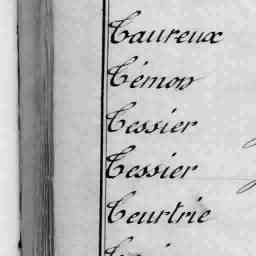 Taureux
Témon
Tessier
Tessier
Teurtrie